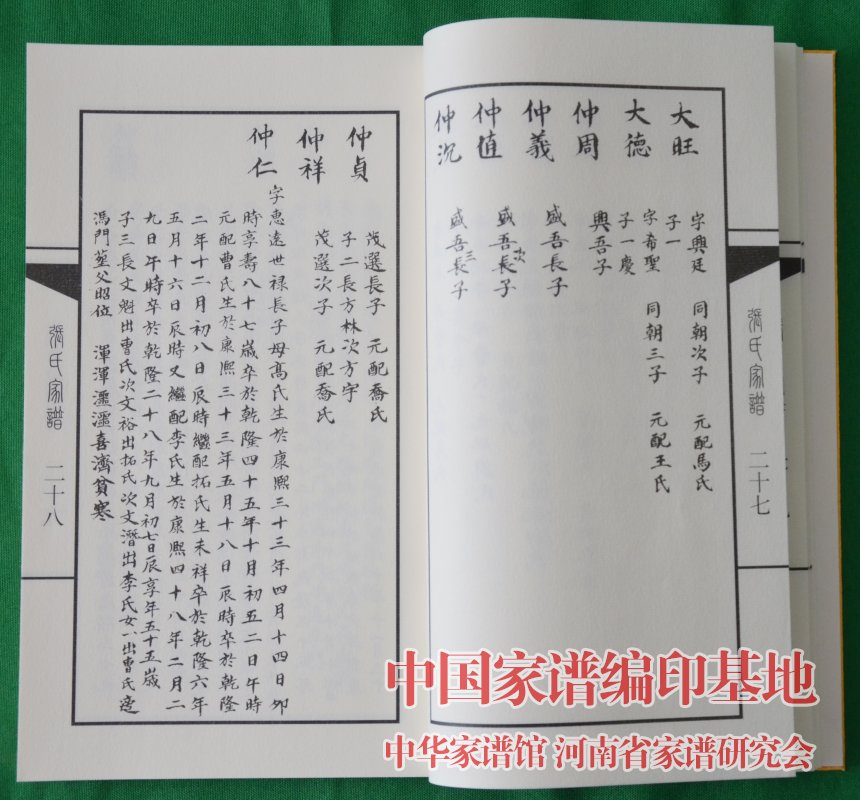 大旺
字興廷 同朝次子 元配馬氏
子一
大德
字希聖 同朝三子 元配王氏
子一慶
仲周
興吾子
仲義
盛吾長子
仲值
盛吾長次子
仲沉
盛吾長三子
張氏家譜 二十七
仲貞
茂選長子 元配喬氏
子二長方林次方宇
仲祥
茂選次子 元配喬氏
仲仁
字惠遠世禄長子母高氏生於康熙三十三年四月十四日卯
時享壽八十七歲卒於乾隆四十五年十月初五二日午時
元配曹氏生於康熙三十三年五月十八日辰時卒於乾隆
二年十二月初八日辰時繼配拓氏生未祥卒於乾隆六年
五月十六日辰時又繼配李氏生於康熙四十八年二月二
九日午時卒於乾隆二十八年九月初七日辰享年五十五歲
子三長文魁出曹氏次文裕出拓氏次文潛出李氏女一出曹氏適
馮門塟父昭位 渾渾濹濹喜濟貧寒
張氏家譜 二十八
中国家谱编印基地
中华家谱馆 河南省家谱研究会